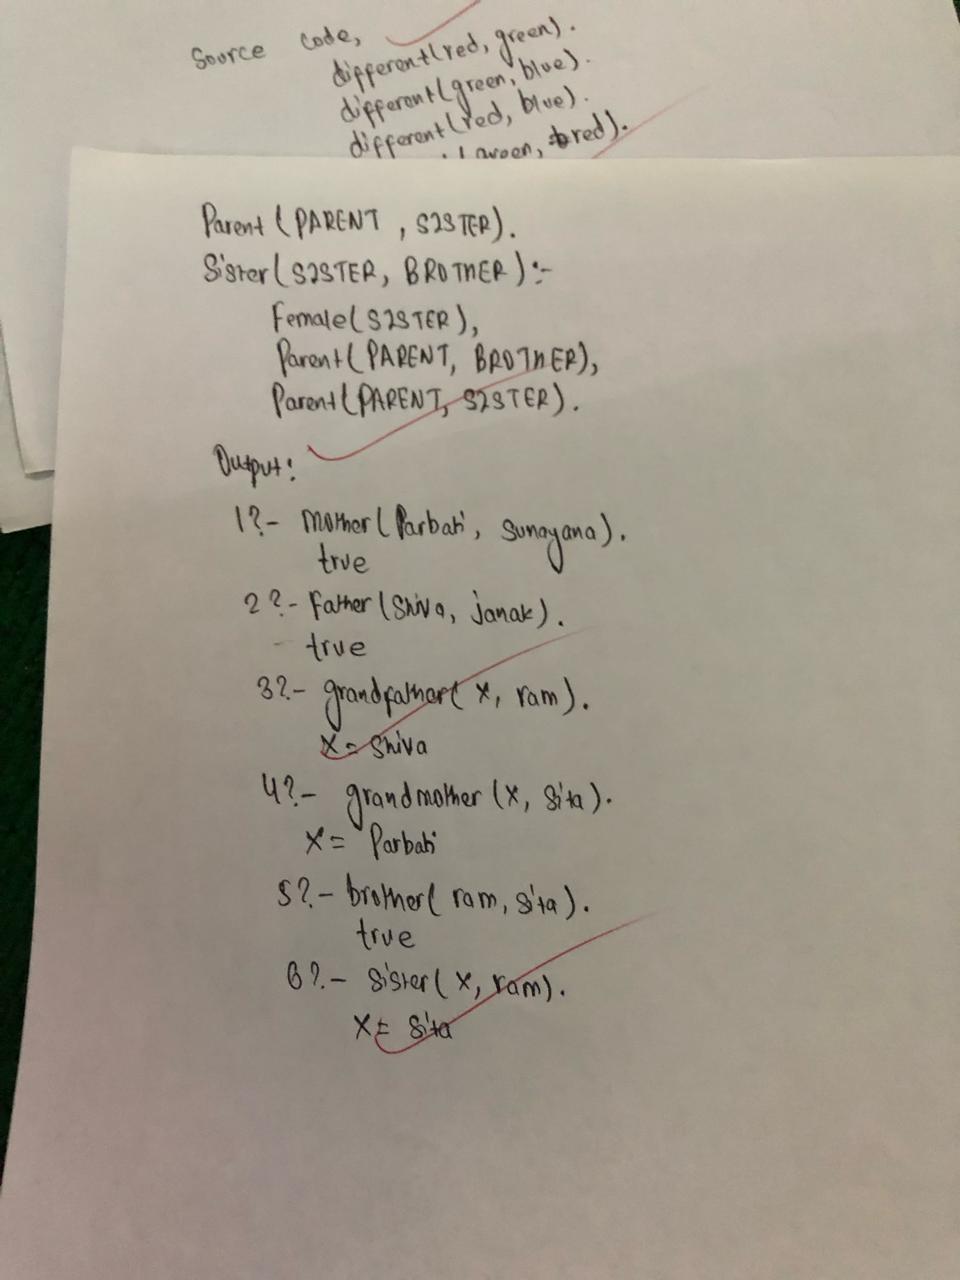 Source code,
different(red, green).
different(green, blue).
different(red, blue).
green, red).
Parent (PARENT, SISTER).
Sister(SISTER, BROTHER):-
Female(SISTER),
Parent(PARENT, BROTHER),
Parent(PARENT, SISTER).
Output:
1?- Mother(Parbati, Sunayana).
true
2?- Father(Shiva, janak).
true
3?- grandfather(X, ram).
X= Shiva
4?- grandmother(X, Sita).
X= Parbati
5?- brother(ram, Sita).
true
6?- Sister(X, ram).
X= Sita